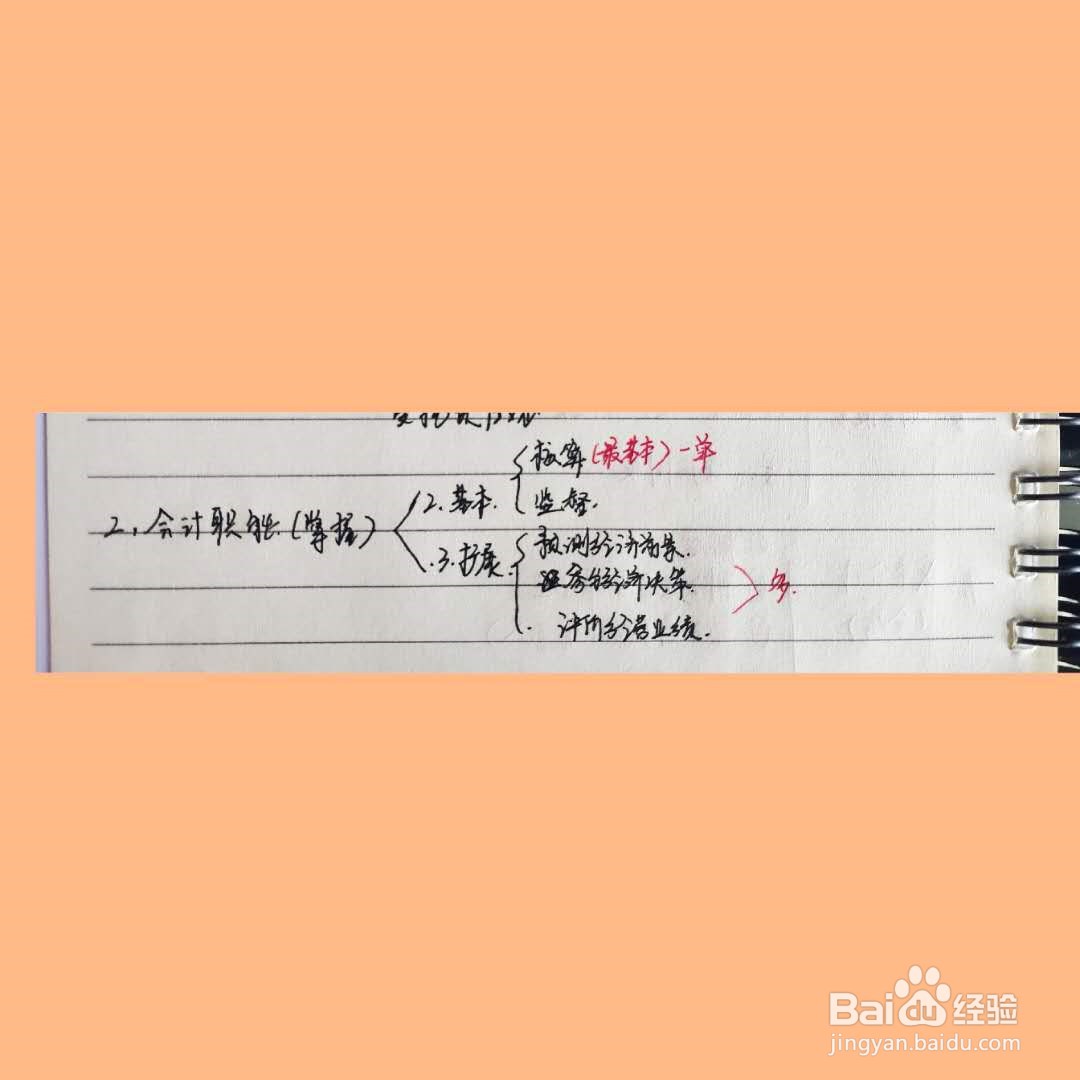 核算(最基本)一单
2、会计职能(掌握)
2.基本.
监督.
3.扩展
预测经济前景.
参与经济决策.
多.
评价经营业绩.
Baidu经验
jingyan.baidu.com